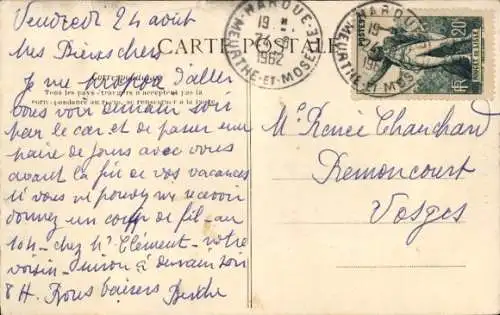 Vendredi 24 août
CARTE POSTALE
Mes Bien chers
Correspondance
Je me propose d'aller
Tous les pays étrangers n'acceptent pas la
correspondance au recto, se renseigner à la Poste
vous voir demain soir
par le car et de passer une
paire de jours avec vous
avant la fin de vos vacances
si vous ne pouvez me recevoir
donnez un coup de fil - au
104 - chez Mr Clément - votre
voisin - sinon à demain soir
8 H. Bons baisers Berthe
HAROUE
MEURTHE-ET-MOSELLE
1962
HAROUE
MEURTHE-ET-MOSELLE
POSTES
Me Renée Chanchard
Remoncourt
Vosges